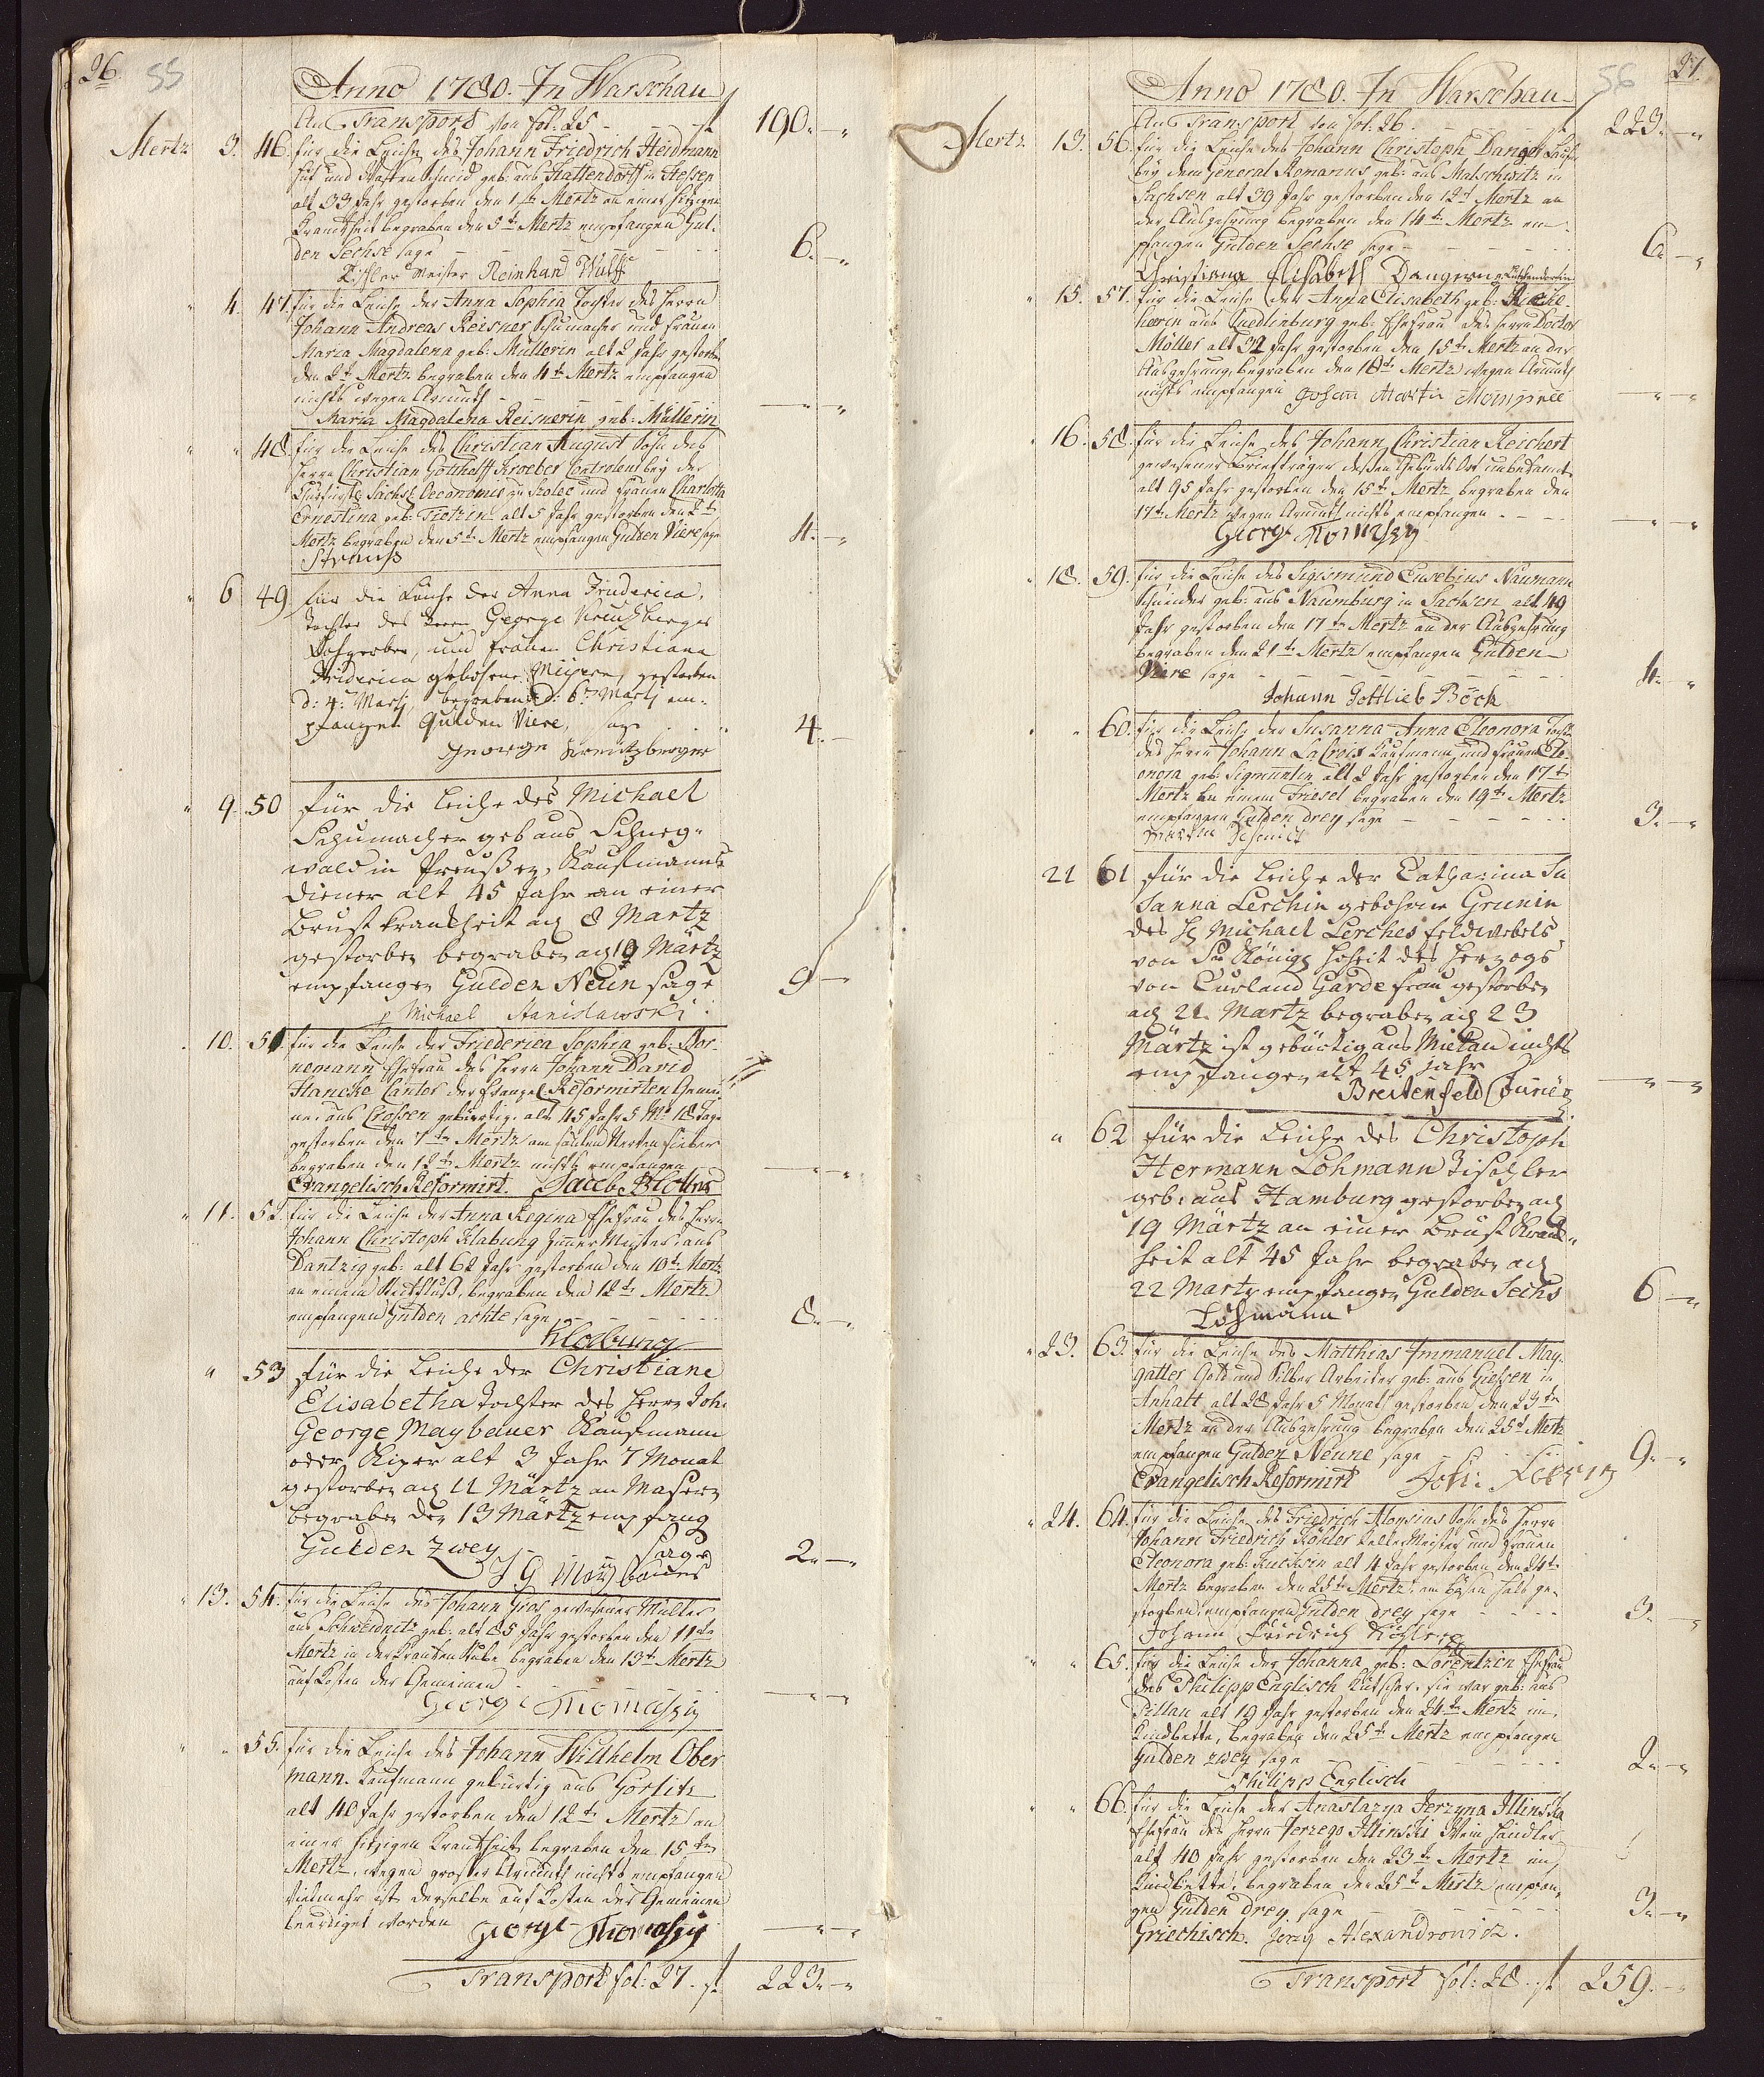 26.
55
Anno 1780. In Warschau
An Transport von fol: 25 - - - fl 190. - "
Mertz 3. 46. für die Leiche des Johann Friedrich Heidmann
Huf und Waffen Schmid geb: aus Hattendorff in Hessen
alt 33 Jahr gestorben den 1ten Mertz an einer hitzigen
Kranckheit begraben den 5t Mertz empfangen Gul-
den Sechse sage - - - 6. - "
Tischler Meister Reinhard Wulff
" 4. 47. für die Leiche der Anna Sophia Tochter des Herrn
Johann Andreas Reisner Schumacher und Frauen
Maria Magdalena geb: Müllerin alt 2 Jahr gestorben
den 2t Mertz begraben den 4t Mertz empfangen
nichts wegen Armuth - - - " - "
Maria Magdalena Reisnerin geb: Müllerin
" " 48. für die Leiche des Christian August Sohn des
Herrn Christian Gotthelff Kroeber Controleur bey der
Churfürstl: Sächs: Oeconomie zu Szolec und Frauen Charlotta
Ernestina geb: Tietzin alt 5 Jahr gestorben den 2t
Mertz begraben den 5t Mertz empfangen Gulden Viere sage 4. - "
Strauss
" 6 49 für die Leiche der Anna Friderica,
Tochter des Herrn George Kreutzberger
Lohgerber, und Frauen Christiana
Friderica gebohrne Meyern, gestorben
d: 4t Martz, begraben d: 6t Martz em-
pfangen Gulden Viere, sage 4. -
George Kreutzberger
" 9. 50 für die Leiche des Michael
Schumacher geb aus
wald in Preussen, Kaufmanns
Diener alt 45 Jahr an einer
Brust kranckheit den 8 Martz
gestorben begraben den 10 Märtz
empfangen Gulden Neün sage 9 -
Michael Stanislawski
10. 51. für die Leiche der Friederica Sophia geb: Bor-
nemann Ehefrau des Herrn Johann David
Hancke Cantor der Evangel Reformirten Gemei-
ne. aus Crossen gebürtig. alt 45 Jahr 5 Mo: 18 Tage
gestorben den 7tn Mertz am faulen Nerven Fieber
begraben den 12t Mertz nichts empfangen - " - "
Evangelisch Reformirt. Jacob
" 11. 52. für die Leiche der Anna Regina Ehefrau des Herrn
Johann Christoph Klabung Zimmer Meister. aus
Dantzig geb: alt 62 Jahr gestorben den 10t Mertz
an einem Steckfluss, begraben den 12t Mertz
empfangen Gulden achte sage - - - 8. - "
Klabung
" 53 für die Leiche der Christiane
Elisabetha Tochter des Herrn Joh.
George Maybauer Kaufmann
alt 3 Jahr 7 Monat
gestorben den 11 Märtz an Masern
begraben den 13 Märtz empfang
Gulden Zwey - - sage 2. - "
J G Maybauer
" 13. 54. für die Leiche des Johann Gros gewesener Müller
aus Schweidnitz geb: alt 85 Jahr gestorben den 11ten
Mertz in der Krancken Stube begraben den 13t Mertz
auf Kosten der Gemeinen - - - " - "
George Thomaszy
" " 55. für die Leiche des Johann Wilhelm Ober
mann. Kaufmann gebürtig aus Görlitz
alt 40 Jahr gestorben den 12t Mertz an
einer hitzigen Kranckheit begraben den 15tn
Mertz, wegen grosser Armuth nichts empfangen
vielmehr ist derselbe auf Kosten der Gemeinen
beerdiget worden - " - "
George Thomaszy
Transport fol: 27. fl 223. - "
27.
56
Anno 1780. In Warschau
An Transport von fol: 26. - - - fl 223. - "
Mertz 13. 56. für die Leiche des Johann Christoph Danger Laufer
bey dem General Komarius, geb: aus Malschwitz in
Sachsen alt 39 Jahr gestorben den 12t Mertz an
der Auszehrung begraben den 14t Mertz em-
pfangen Gulden Sechse sage - - - 6. - "
Christiana Elisabeth Dangern
" 15. 57. für die Leiche der Anna Elisabeth geb:
herin aus Quedlinburg geb: Ehefrau des Herrn Doctor
Möller alt 32 Jahr gestorben den 15t Mertz an der
Auszehrung, begraben den 18t Mertz wegen Armuth
nichts empfangen - " - "
Johann Martin
" 16. 58. für die Leiche des Johann Christian Reichert
gewesener Briefträger dessen Geburts Ort unbekannt
alt 95 Jahr gestorben den 15t Mertz begraben den
17t Mertz wegen Armuth nichts empfangen - - - " - "
George Thomaszy
" 18. 59. für die Leiche des Sigismund Eusebius Naumann
Schneider geb: aus Naumburg in Sachsen alt 49
Jahr gestorben den 17t Mertz an der Auszehrung
begraben den 21t Mertz empfangen Gulden
Viere sage - - - 4. - "
Johann Gottlieb Böck
" " 60. für die Leiche der Susanna Anna Eleonora Tocht:
des Herrn Johann LaCroix Kaufmann und Frauen Ele-
onora geb: Sigmuntin alt 2 Jahr gestorben den 17t
Mertz an einem Friesel begraben den 19t Mertz
empfangen Gulden drey sage - - - 3. - "
Schmidt
21 61 für die Leiche der Catharina Su
sanna Lerchin gebohrne Grunin
des H Michael Lerches Feldwebels
von Sr Königl Hoheit des Herzogs
von Curland Garde frau gestorben
den 21. Martz begraben den 23
Märtz ist gebürtig aus Mietau nichts
empfangen alt 45 Jahr - " - "
Breitenfeld Fourier
" 62 für die Leiche des Christoph
Hermann Lohmann Tischler
geb: aus Hamburg gestorben den
19 Märtz an einer Brust Kranck-
heit alt 45 Jahr begraben den
22 Martz empfangen Gulden Sechs 6 - "
Lohmann
" 23. 63. für die Leiche des Matthias Immanuel May-
gatter Gold und Silber Arbeiter geb: aus Giessen in
Anhalt alt 28 Jahr 5 Monat, gestorben den 23tn
Mertz an der Auszehrung begraben den 25t Mertz
empfangen Gulden Neune sage 9. - "
Evangelisch Reformirt Joh:
" 24. 64. für die Leiche des Friedrich Aloysius Sohn des Herrn
Johann Friedrich Köhler Keller Meister und Frauen
Eleonora geb: alt 4 Jahr gestorben den 24t
Mertz begraben den 25t Mertz. am bösen Hals ge-
storben. empfangen Gulden drey sage - - - 3. - "
Johann Friedrich Köhler
" " 65. für die Leiche der Johanna geb: Lorentzin Ehefrau
des Philipp Englisch Kutscher. sie war geb: aus
Pillau alt 19 Jahr gestorben den 24t Mertz im
Kindbette, begraben den 25t Mertz empfangen
Gulden zwey sage - - - 2. - "
Philipp Englisch
" " 66. für die Leiche der Anastazya Jerzyna Illinska
Ehefrau des Herrn Jerzego Illinski Wein Händler
alt 40 Jahr gestorben den 23t Mertz im
Kindbette. begraben den 25t Mertz empfan-
gen Gulden drey sage - - - 3. - "
Griechisch. Jerzy Alexandrowicz.
Transport fol: 28. fl 259. - "